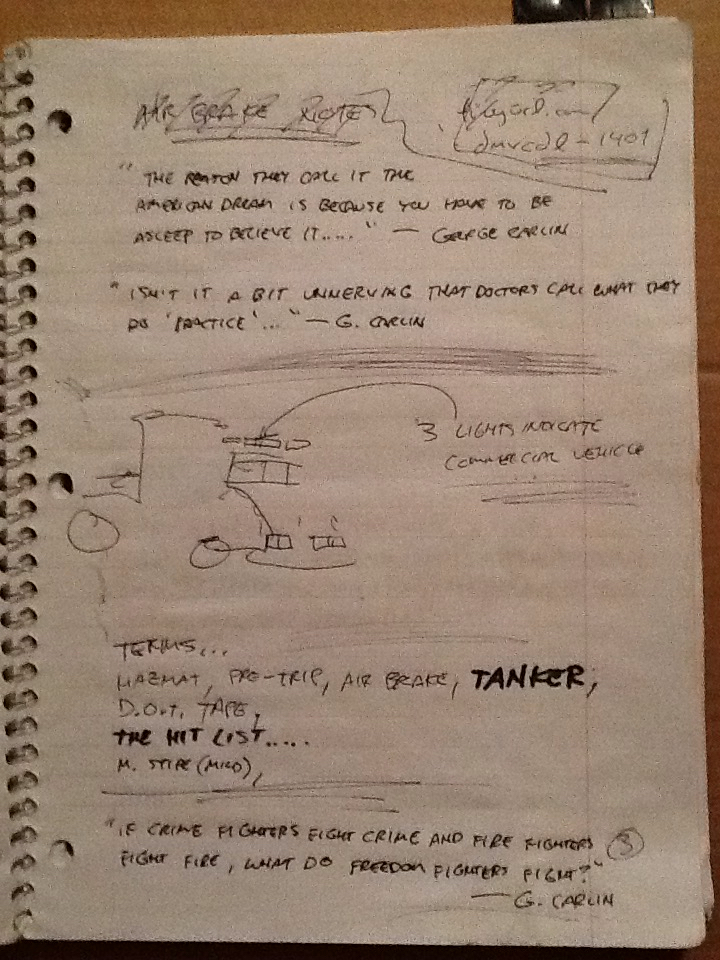 AIR BRAKE NOTES
dmvcdl-1401
"THE REASON THEY CALL IT THE
AMERICAN DREAM IS BECAUSE YOU HAVE TO BE
ASLEEP TO BELIEVE IT....." — GEORGE CARLIN
"ISN'T IT A BIT UNNERVING THAT DOCTORS CALL WHAT THEY
DO 'PRACTICE'..." — G. CARLIN
3 LIGHTS INDICATE
COMMERCIAL VEHICLE
TERMS...
HAZMAT, PRE-TRIP, AIR BRAKE, TANKER,
D.O.T. TAPE,
THE HIT LIST.....
M. STIPE (MILO),
"IF CRIME FIGHTERS FIGHT CRIME AND FIRE FIGHTERS
FIGHT FIRE, WHAT DO FREEDOM FIGHTERS FIGHT?"
3
— G. CARLIN